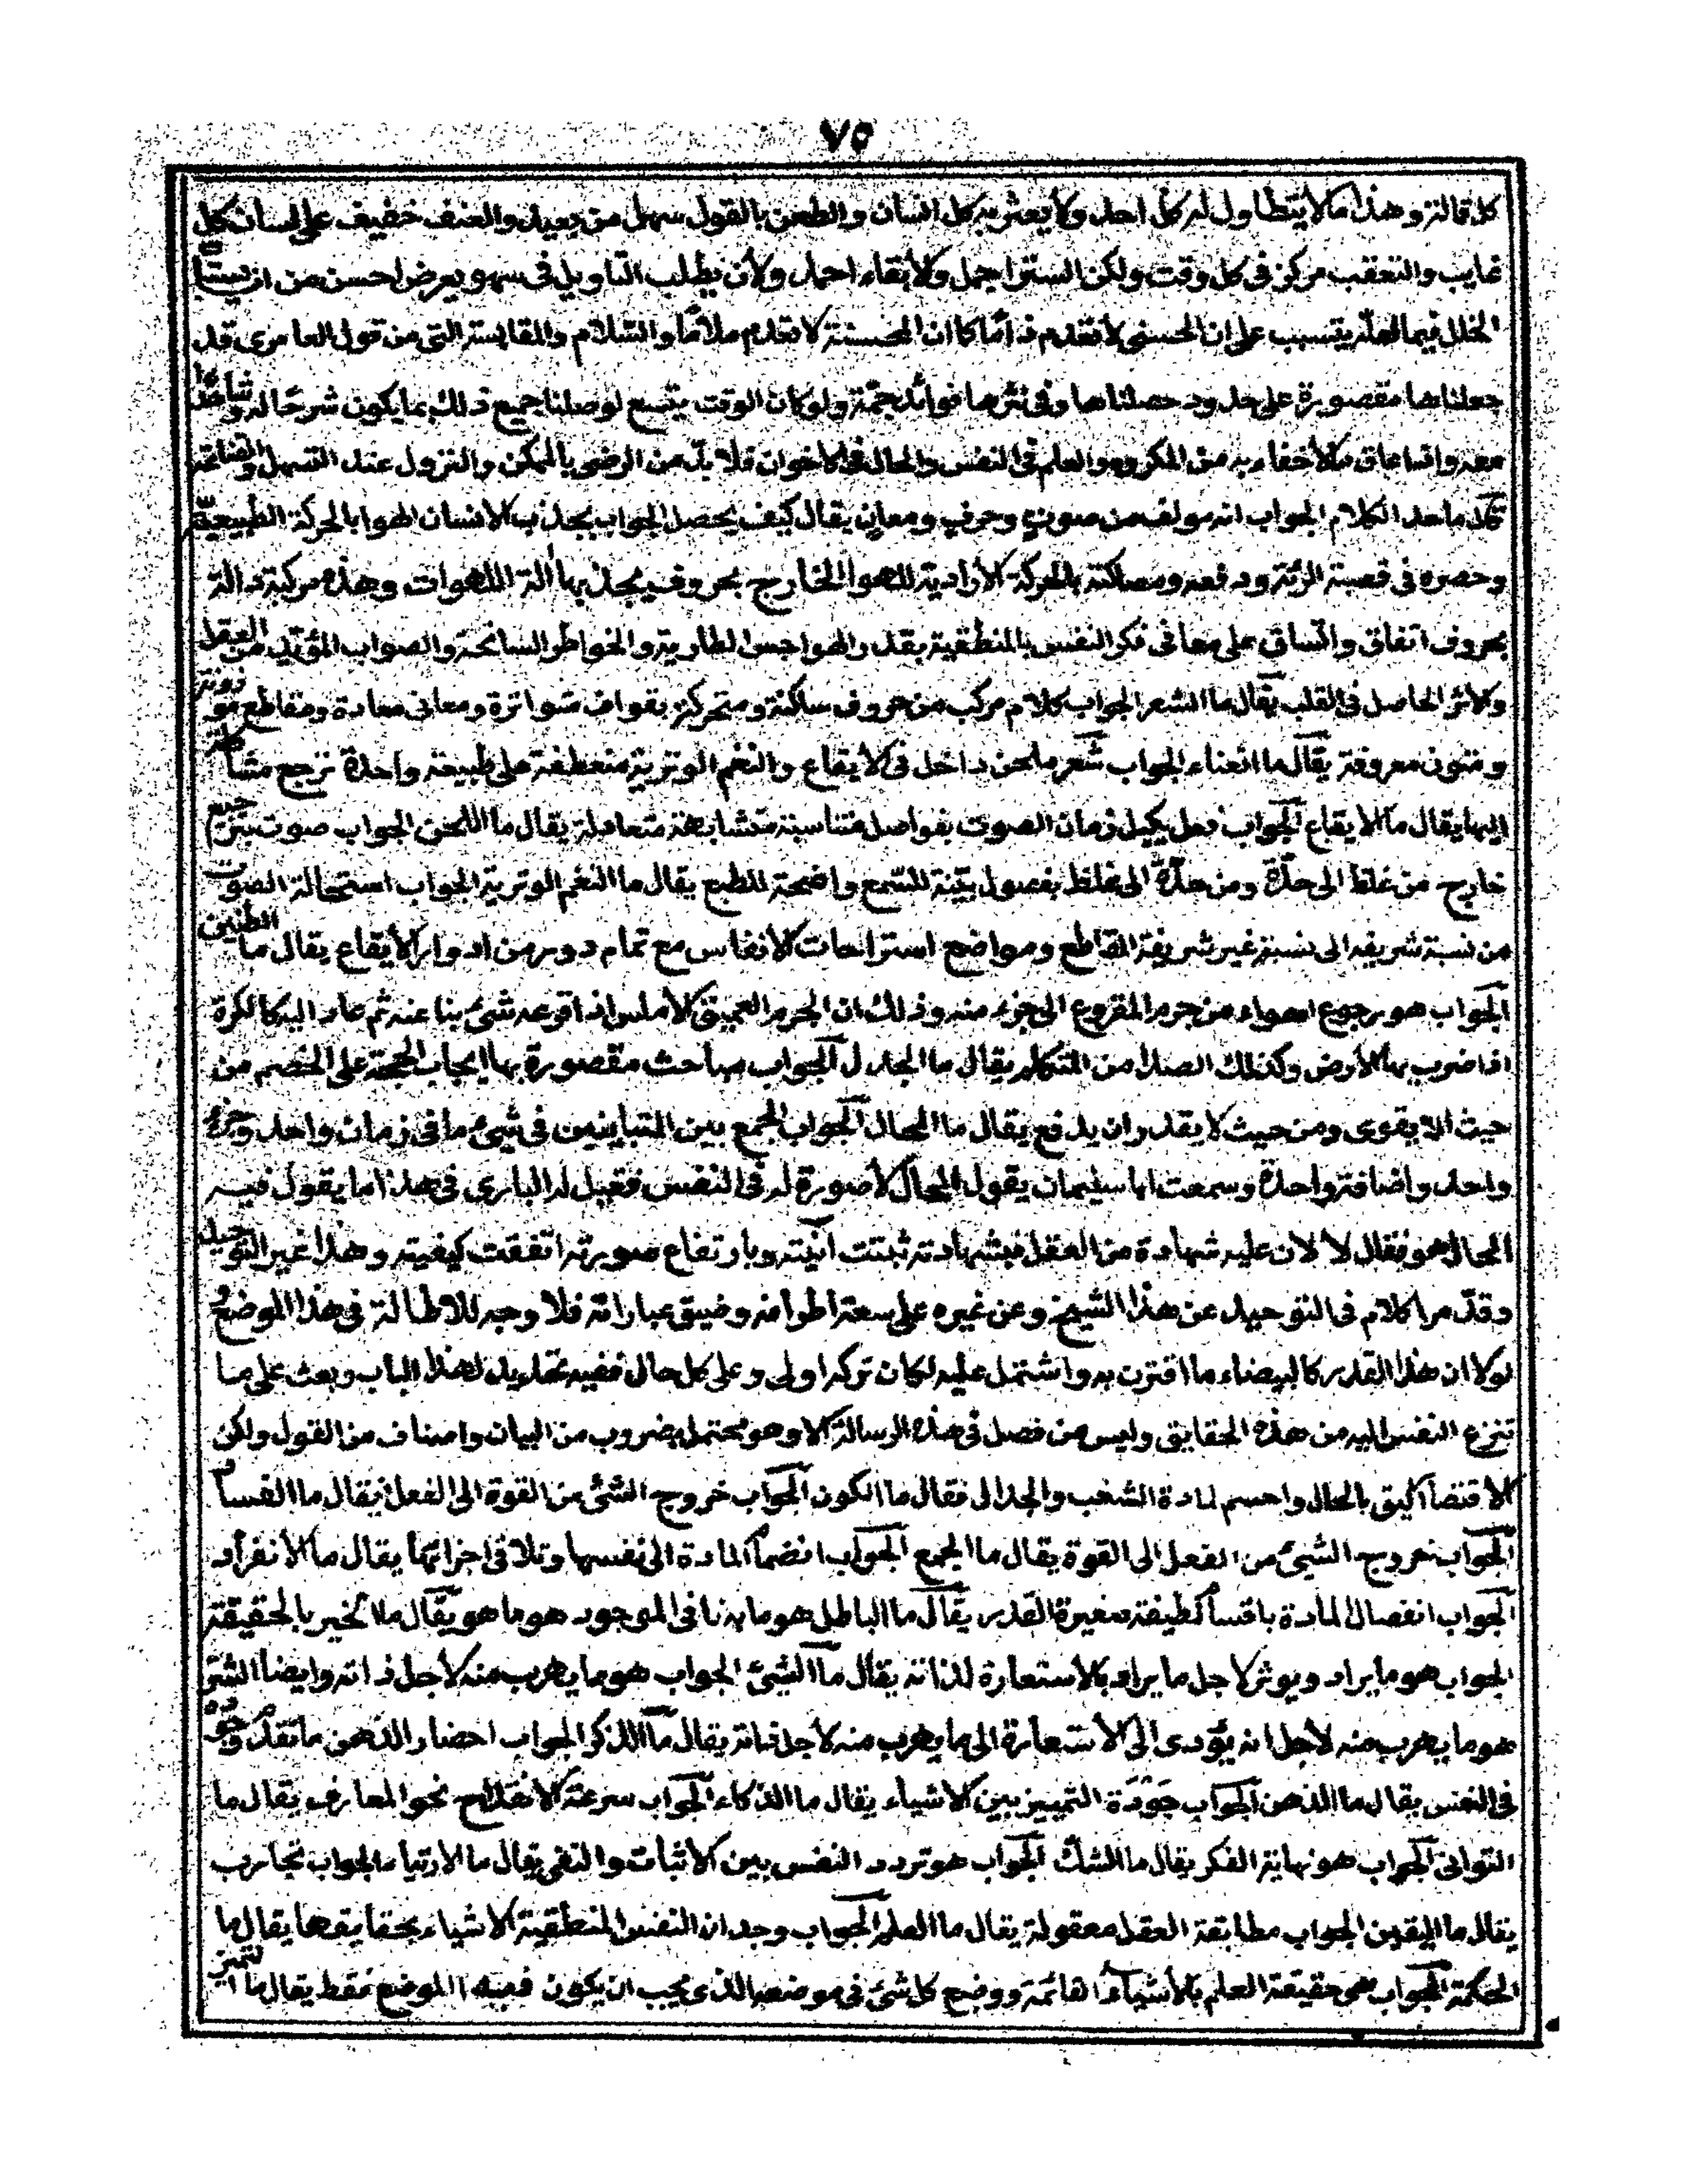 ٧٥
كل قالة وهذا ما لا يتطاول له كل احد ولا يعثر به كل انسان والطعن بالقول سهل من بعيد والعنف خفيف على لسان كل
غايب والتعقب مركز فى كل وقت ولكن الستر اجمل والابقاء احمد ولأن يطلب التاويل فى سهو يعرض احسن من ان
الخلل فيما لعله يتسبب على ان الحسنى لا تقدم ذامّا كما ان المحسنة لا تقدم ملامّا والسلام والمقايسة التى من قول العامرى قد
جعلناها مقصورة على حدود حصلناها وفى نثرها فوائد جمّة ولو كان الوقت يتسع لوصلنا جميع ذلك بما يكون شرحًا له
معه وانما عاق ما لا خفاء به من المكروه والعلم فى النفس والحال فى الاخوان فلا بدّ من الرضى بالممكن والنزول عند التسهل
ما حد الكلام الجواب انه مولف من صوت وحرف ومعان يقال كيف يحصل الجواب بجذب الانسان الهوا بالحركة الطبيعيّة
وحصره فى قصبة الرئة ودفعه ومصاكته بالحركة الارادية للهوا الخارج بحروف يجذبها آلة اللهوات وهذه مركبة دالة
بحروف اتفاق واتساق على معا فى فكر النفس بالمنطقية بقدر الهواجس الطارية والخواطر السانحة والصواب المؤيد من العقل
والاثر الحاصل فى القلب يقال ما الشعر الجواب كلام مركب من حروف ساكنة ومتحركة بقواف متواترة ومعانى معادة ومقاطع موزونة
ومتون معروفة يقال ما الغناء الجواب شعر ملحن داخل فى الايقاع والنغم الوترية منعطفة على طبيعة واحدة ترجع مشاكلة
اليها يقال ما الايقاع الجواب فعل يكيل زمان الصوت بفواصل متناسبة متشابهة متعادلة يقال ما اللحن الجواب صوت بترجيع
خارج من غلظ الى حدّة ومن حدّة الى غلظ بفصول بيّنة للسّمع واضحة للطبع يقال ما النغم الوترية الجواب استحالة الصوت
من نسبة شريفة الى نسبة غير شريفة المقاطع ومواضع استراحات الانفاس مع تمام دور من ادوار الأيقاع يقال ما الطنين
الجواب هو رجوع الهواء من جرم المقروع الى جزء منه وذلك ان الجرم العميق الاملس اذا قرعه شئ نبا عنه ثم عاد اليه كالكرة
اذا ضرب بها الارض وكذلك الصدا من المتكلم يقال ما الجدل الجواب مباحث مقصورة بها ايجاب الحجة على الخصم من
حيث الا يقوى ومن حيث لا يقدر ان يدفع يقال ما المحال الجواب الجمع بين المتباينين فى شئ ما فى زمان واحد وجزء
واحد واضافة واحدة وسمعت ابا سليمان يقول المحال لا صورة له فى النفس فقيل له البارى فى هذا ما يقول فيه
المحال هو فقال لا لان عليه شهادة من العقل فبشهادته ثبتت آنيته وبارتفاع صورته اتفقت كيفيته وهذا غير التوحيد
وقد مر الكلام فى التوحيد عن هذا الشيخ وعن غيره على سعة اطرافه وضيق عباراته فلا وجه للاطالة فى هذا الموضع و
لولا ان هذا القدر كالبيضاء ما اقترن به واشتمل عليه لكان تركه اولى وعلى كل حال ففيه تحديد لهذا الباب وبعث على ما
تنزع النفس اليه من هذه الحقايق وليس من فصل فى هذه الرسالة الا وهو يحتمل بضروب من البيان واصناف من القول ولكن
الاقتضا اليق بالحال واحسم لمادة الشغب والجدال فقال ما الكون الجواب خروج الشئ من القوة الى الفعل يقال ما الفساد
الجواب خروج الشئ من الفعل الى القوة يقال ما الجمع الجواب انضمام المادة الى نفسها وتلافى اجزائها يقال ما الانفراد
الجواب انفصال المادة باقسام لطيفة صغيرة القدر يقال ما الباطل هو ما به نافى الموجود هو ما هو يقال ما الخير بالحقيقة
الجواب هو ما يراد ويوثر لاجل ما يراد بالاستعارة لذاته يقال ما الشئ الجواب هو ما يهرب منه لاجل ذاته وايضا الشرّ
هو ما يهرب منه لأجل انه يؤدى الى الاستعارة الى ما يهرب منه لاجل ذاته يقال ما الذكر الجواب احضار الذهن ما تقدم وجوده
فى النفس يقال ما الذهن الجواب جودة التمييز بين الاشياء يقال ما الذكاء الجواب سرعة الانقداح نحو المعارف يقال ما
التوانى الجواب هو نهاية الفكر يقال ما الشك الجواب هو تردد النفس بين الاثبات والنفى يقال ما الارتياء الجواب تجارب
يقال ما اليقين الجواب مطابقة العقل معقولة يقال ما العلم الجواب وجدان النفس المنطقية الاشياء بحقايقها يقال ما
الحكمة الجواب هى حقيقة العلم بالأشياء القائمة ووضع كل شئ فى موضعه الذى يجب ان يكون فيه الموضع فقط يقال ما التميز